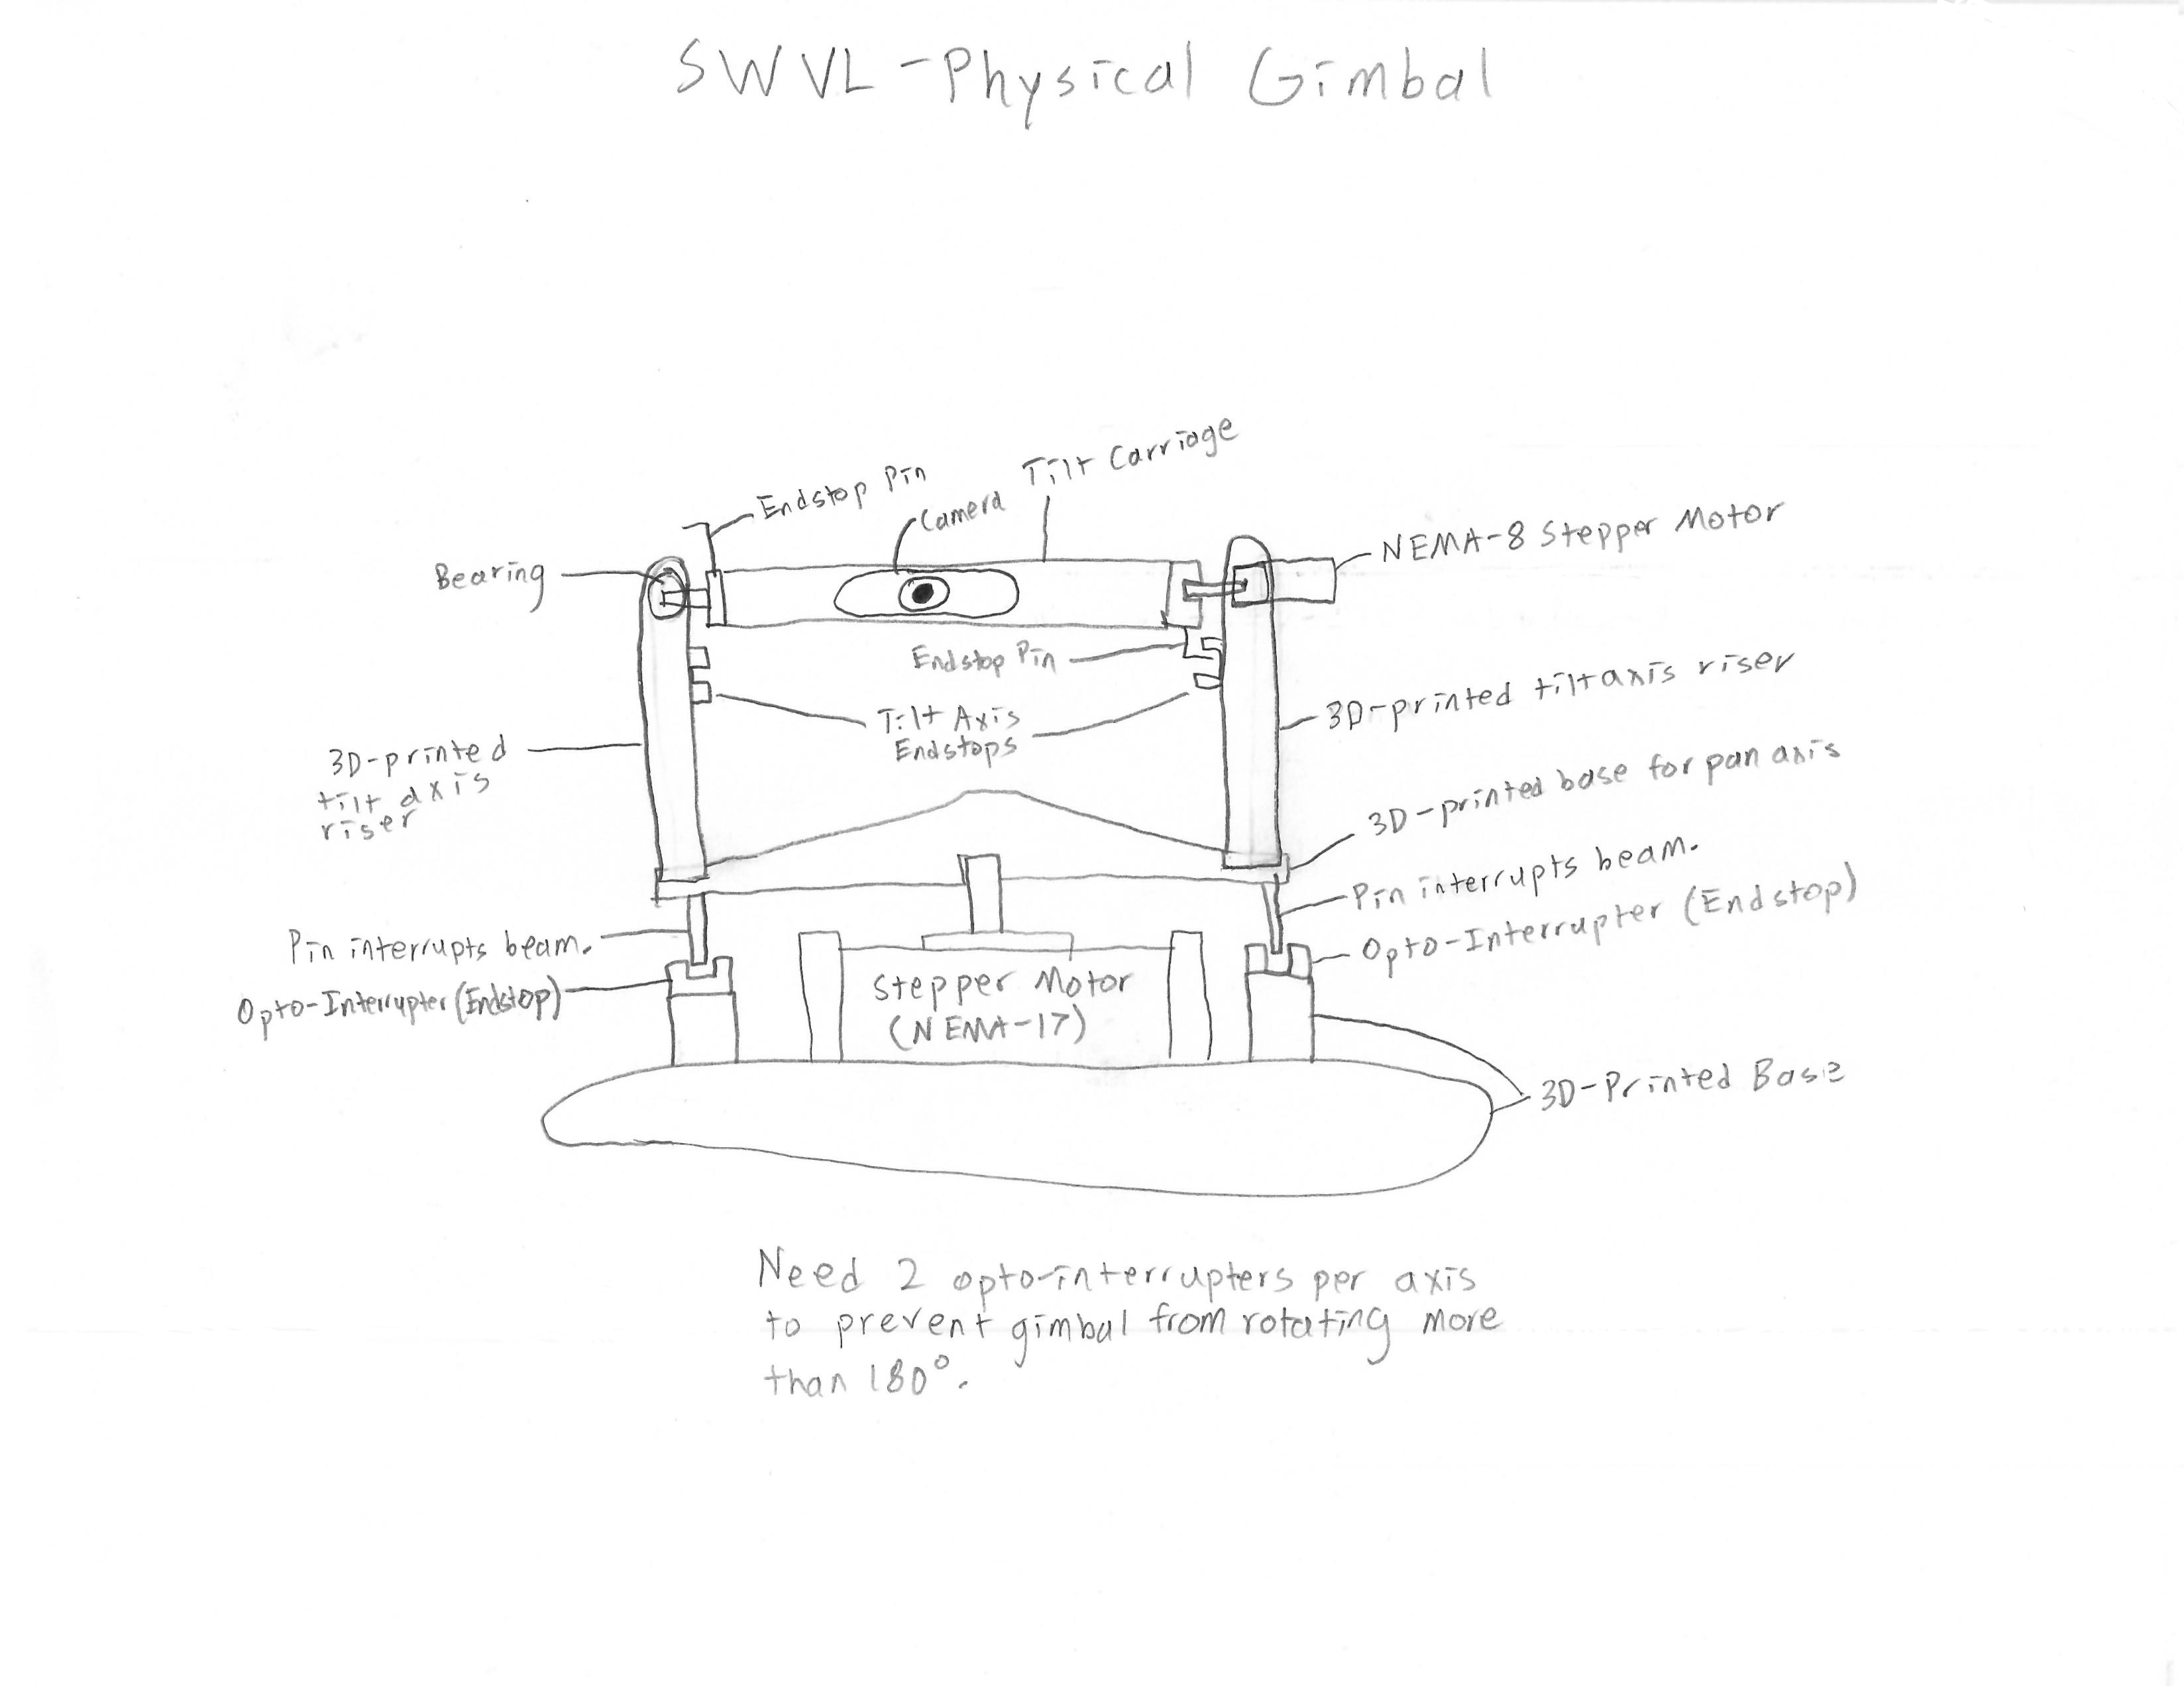 SWVL-Physical Gimbal
Endstop Pin
Camera
Tilt Carriage
NEMA-8 Stepper Motor
Bearing
Endstop Pin
Tilt Axis
Endstops
3D-printed
tilt axis
riser
3D-printed tilt axis riser
3D-printed base for pan axis
Pin interrupts beam.
Opto-Interrupter (Endstop)
Pin interrupts beam.
Opto-Interrupter (Endstop)
Stepper Motor
(NEMA-17)
3D-Printed Base
Need 2 opto-interrupters per axis
to prevent gimbal from rotating more
than 180°.